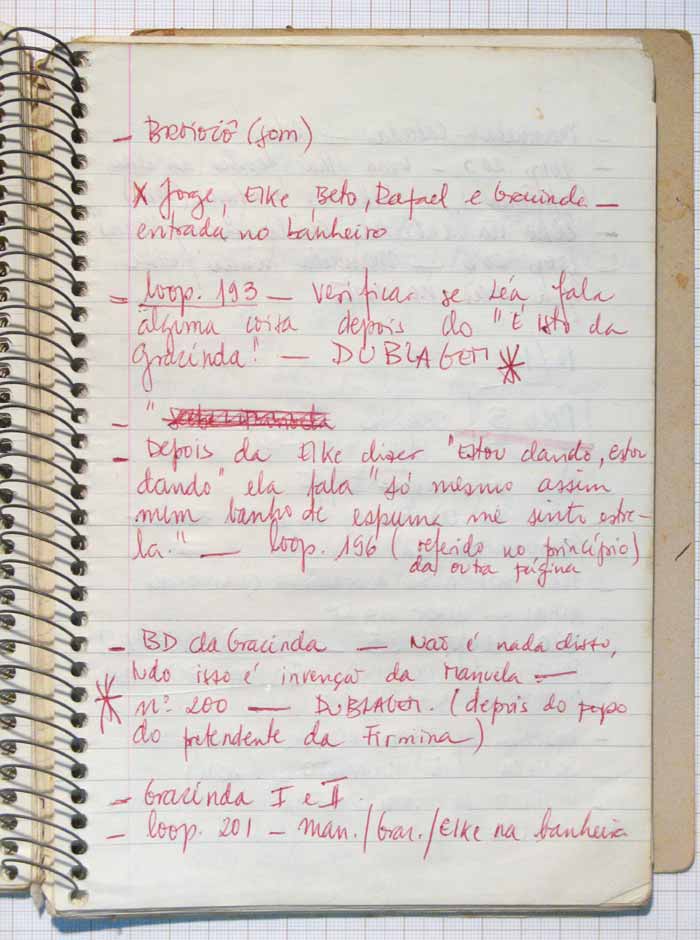 – (som)
X Jorge, Elke, Beto, Rafael e Gracinda –
entrada no banheiro
– loop. 193 – Verificar se Léa fala
alguma coisa depois do "É isto da
Gracinda". – DUBLAGEM *
– "
– Depois da Elke dizer "Estou dando, estou
dando" ela fala "só mesmo assim
num banho de espuma me sinto estre-
la." – loop. 196 (referido no princípio)
da outra página
– BD da Gracinda – Não é nada disto,
tudo isso é invenção da Manuela –
* nº 200 – DUBLAGEM. (depois do papo
do pretendente da Firmina)
– Gracinda I e II.
– loop. 201 – Man./Grac./Elke na banheira